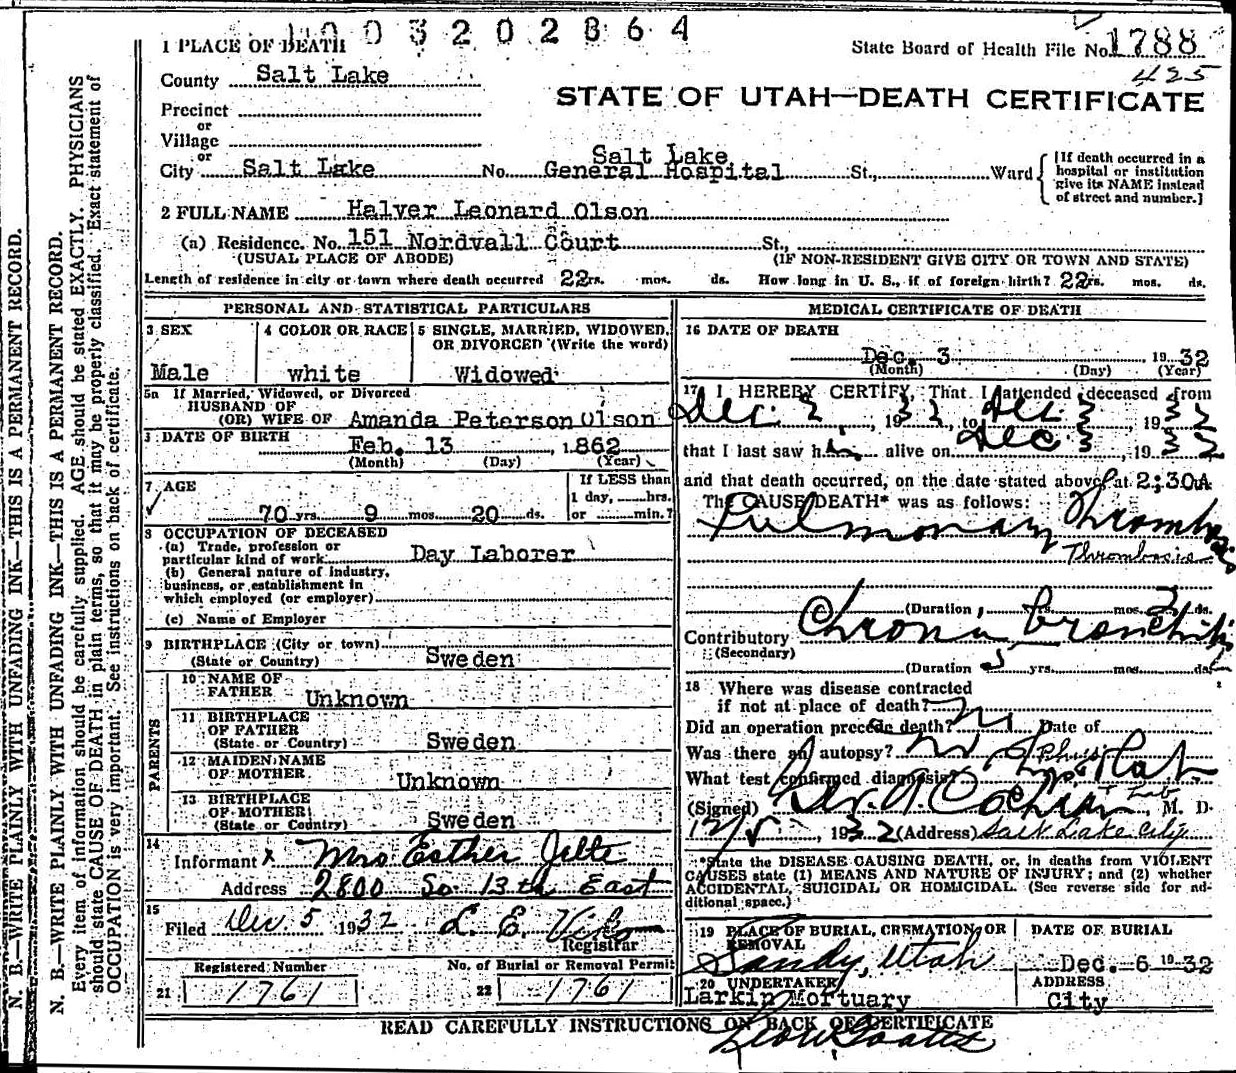 1003202864
1 PLACE OF DEATH
State Board of Health File No. 1788
425
County Salt Lake
STATE OF UTAH—DEATH CERTIFICATE
Precinct
or
Village
or
City Salt Lake No. Salt Lake General Hospital St., Ward
[If death occurred in a hospital or institution give its NAME instead of street and number.]
2 FULL NAME Halver Leonard Olson
(a) Residence. No. 151 Nordvall Court St.,
(USUAL PLACE OF ABODE) (IF NON-RESIDENT GIVE CITY OR TOWN AND STATE)
Length of residence in city or town where death occurred 22 yrs. mos. ds. How long in U. S., if of foreign birth? 22 yrs. mos. ds.
PERSONAL AND STATISTICAL PARTICULARS
3 SEX
Male
4 COLOR OR RACE
white
5 SINGLE, MARRIED, WIDOWED, OR DIVORCED (Write the word)
Widowed
5a If Married, Widowed, or Divorced
HUSBAND OF
(OR) WIFE OF Amanda Peterson Olson
DATE OF BIRTH
Feb. 13, 1862
(Month) (Day) (Year)
7 AGE
70 yrs. 9 mos. 20 ds.
If LESS than
1 day, hrs.
or min.?
8 OCCUPATION OF DECEASED
(a) Trade, profession or
particular kind of work Day Laborer
(b) General nature of industry,
business, or establishment in
which employed (or employer)
(c) Name of Employer
9 BIRTHPLACE (City or town)
(State or Country) Sweden
PARENTS
10 NAME OF
FATHER Unknown
11 BIRTHPLACE
OF FATHER
(State or Country) Sweden
12 MAIDEN NAME
OF MOTHER Unknown
13 BIRTHPLACE
OF MOTHER
(State or Country) Sweden
14
Informant x Mrs Esther
Address 2800 So 13th East
15
Filed Dec. 5 1932 L. E.
Registrar
Registered Number
21 1761
No. of Burial or Removal Permit
22 1761
MEDICAL CERTIFICATE OF DEATH
16 DATE OF DEATH
Dec. 3, 1932
(Month) (Day) (Year)
17 I HEREBY CERTIFY, That I attended deceased from
Dec. 2, 1932, to Dec 3, 1932
that I last saw him alive on Dec. 3, 1932
and that death occurred, on the date stated above, at 2:30 A
The CAUSE DEATH* was as follows:
Pulmonary Thrombosis
Thrombosis
(Duration, yrs. mos. 2 ds.
Contributory Chronic bronchitis
(Secondary)
(Duration 5 yrs. mos. ds.
18 Where was disease contracted
if not at place of death?
Did an operation precede death? Date of
Was there an autopsy? no
What test confirmed diagnosis? Phys
(Signed) M. D.
12/5, 1932 (Address) Salt Lake City
*State the DISEASE CAUSING DEATH, or, in deaths from VIOLENT
CAUSES state (1) MEANS AND NATURE OF INJURY; and (2) whether
ACCIDENTAL, SUICIDAL OR HOMICIDAL. (See reverse side for ad-
ditional space.)
19 PLACE OF BURIAL, CREMATION, OR
REMOVAL
Sandy, Utah
DATE OF BURIAL
Dec. 6 1932
20 UNDERTAKER
Larkin Mortuary
ADDRESS
City
READ CAREFULLY INSTRUCTIONS ON BACK OF CERTIFICATE
N. B.—WRITE PLAINLY WITH UNFADING INK—THIS IS A PERMANENT RECORD.
N. B.—WRITE PLAINLY WITH UNFADING INK—THIS IS A PERMANENT RECORD.
Every item of information should be carefully supplied. AGE should be stated EXACTLY. PHYSICIANS
should state CAUSE OF DEATH in plain terms, so that it may be properly classified. Exact statement of
OCCUPATION is very important. See instructions on back of certificate.